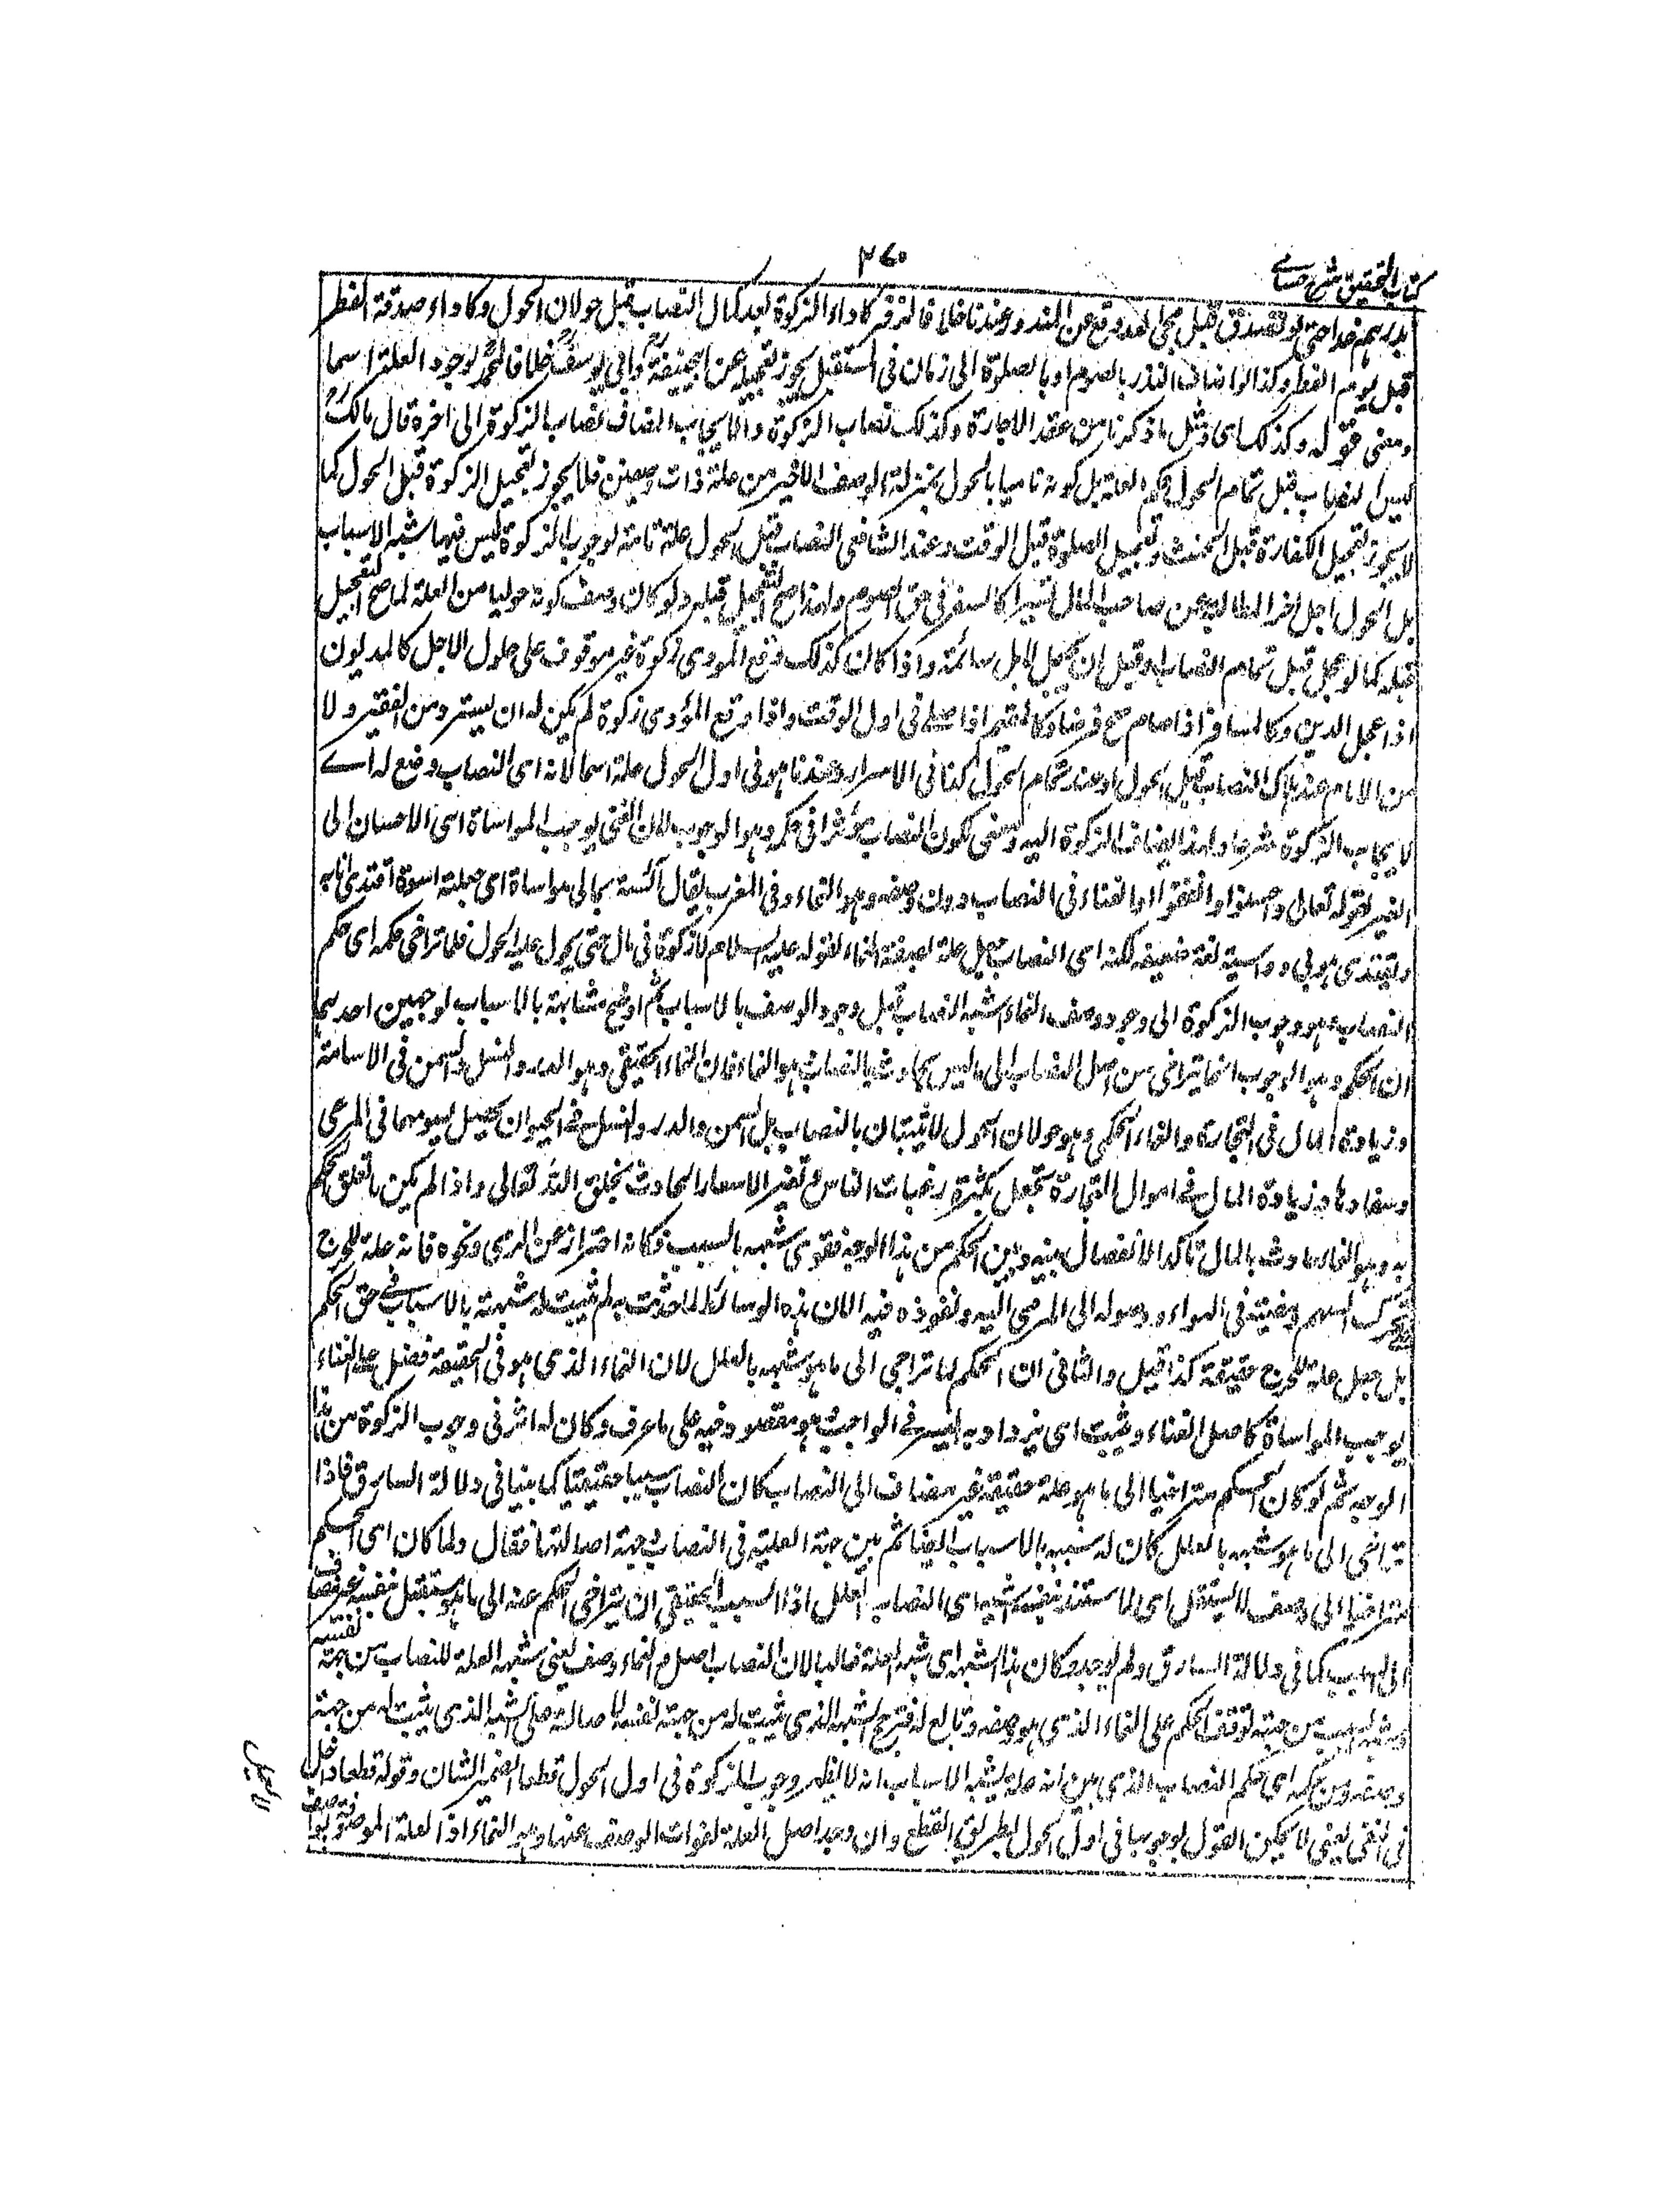 كتاب التحقيق شرح حسامى
٢٦٠
بدرهم غدا حتى لو تصدق قبل مجئ الغد وقع عن المنذور عندنا خلافا لزفر كاداء الزكوة بعد كمال النصاب قبل حولان الحول وكاداء صدقة الفطر
قبل يوم الفطر وكذا لو اضاف النذر بالصوم او بالصلوة الى زمان فى المستقبل يجوز تعجيله عن ابيحنيفة وابي يوسف خلافا لمحمد لوجود العلة اسما
ومعنى قوله وكذلك اى ومثل ما ذكرنا من عقد الاجارة وكذلك نصاب الزكوة والايجاب المضاف نصاب الزكوة الى اخره قال مالك
ليس لنصاب قبل تمام الحول حكم العلة بل كونه ناميا بالحول بمنزلة الوصف الاخير من علة ذات وصفين فلا يجوز تعجيل الزكوة قبل الحول كما
لا يجوز تعجيل الكفارة قبل الحنث وتعجيل الصلوة قبل الوقت وعند الشافعى النصاب قبل الحول علة تامة لوجوب الزكوة ليس فيها شبه الاسباب
بل الحول اجل اخر المطالبة عن صاحب المال تيسيرا كالسفر فى حق الصوم ولهذا صح التعجيل قبله ولو كان وصف كونه حوليا من العلة لما صح التعجيل
قبله كما لو عجل قبل تمام النصاب وقبل ان يجعل الابل سائمة واذا كان كذلك وقع المودى زكوة غير موقوف على حلول الاجل كالمديون
اذا عجل الدين وكالمسافر اذا صام صح فرضا وكالمقيم اذا صلى فى اول الوقت واذا وقع المؤدى زكوة لم يكن له ان يسترد من الفقير ولا
من الامام عند هلاك النصاب قبل الحول او عند تمام الحول كذا فى الاسرار وعندنا هو فى اول الحول علة اسما لانه اى النصاب وضع له اے
لايجاب الزكوة شرعا ولهذا يضاف الزكوة اليه ومعنى لكون النصاب مؤثرا فى حكمه وهو الوجوب لان الغنى يوجب المواساة اى الاحسان الى
الغير لقوله تعالى واحسنوا وانفقوا والغناء فى النصاب دون وصفه وهو النماء وفى المغرب يقال آسيته بمالى مواساة اى جعلته اسوة اقتدى انا به
ويقتدى هو بي وواسيته لغة ضعيفه لكنه اى النصاب جعل علة بصفة النماء لقوله عليه السلام لا زكوة فى مال حتى يحول عليه الحول فلما تراخى حكمه اى حكم
النصاب وهو وجوب الزكوة الى وجود وصف النماء شبه النصاب قبل وجود الوصف بالاسباب ثم اوضح مشابهته بالاسباب لوجهين احدهما
ان الحكم وهو الوجوب انما يتراخى من اصل النصاب الى ما ليس بحادث بالنصاب وهو النماء فان النماء الحقيقى وهو الدر والنسل والسمن فى الاسامة
وزيادة المال فى التجارة والنماء الحكمى وهو حولان الحول لا يثبتان بالنصاب بل السمن والدر والنسل فے الحيوان يحصل بسومها فى المرعى
وسفادها وزيادة المال فے اموال التجارة تحصل بكثرة رغبات الناس وتغير الاسعار الحادث بخلق الله تعالى واذا لم يكن ما تعلق الحكم
به وهو النماء حادث بالمال تاكد الانفصال بينه وبين الحكم من هذا الوجه فقوى شبهه بالسبب وكانه احتراز عن الرمى ونحوه فانه علة للجرح
بتحرك السهم ومضيه فى الهواء ووصوله الى المرمى اليه ونفوذه فيه الا ان هذه الوسائط لما حدثت به لم يثبت له شبهة بالاسباب فے حق الحكم
بل جعل علة للجرح حقيقة كذا قيل والثانى ان الحكم لما تراخى الى ما هو شبيه بالعلل لان النماء الذى هو فى الحقيقة فضل على الغناء
يوجب المواساة كاصل الغناء ويثبت اى يزداد به اليسر فے الواجب وهو مقصود فيه على ما عرف وكان له اثر فى وجوب الزكوة من هذا
الوجه ثم لو كان الحكم متراخيا الى ما هو علة حقيقة غير مضاف الى النصاب كان النصاب سببا حقيقيا كما بينا فى دلالة السارق فاذا
تراخى الى ما هو شبيه بالعلل كان له شبه بالاسباب ايضا ثم بين جهة العلية فى النصاب جهة اصالتها فقال ولما كان اى الحكم
متراخيا الى وصف لا يستقل اى لا يستبد بنفسه شبه اى النصاب العلل اذ السبب الحقيقى ان يتراخى الحكم عنه الى ما هو مستقل بنفسه غير مضاف
الى السبب كما فى دلالة السارق ولم يوجد وكان هذا الشبه اى شبه العلة غالبا لان النصاب اصل والنماء وصف يعنى شبه العلة للنصاب من جهة نفسه
وشبه السبب من جهة توقف الحكم على النماء الذى هو وصفه وتابع له فترجح الشبه الذى يثبت له من جهة نفسه لاصالته على الشبه الذى يثبت له من جهة
وصفه ومن حكمه اى حكم النصاب الذى بين انه علة يشبه الاسباب انه لا يظهر وجوب الزكوة فى اول الحول قطعا الضمير للشان وقوله قطعا داخل
فى النفى يعنى لا يمكن القول بوجوبها فى اول الحول بطريق القطع وان وجد اصل العلة لفوات الوصف عنها وهو النماء اذ العلة الموصوفة بوصف